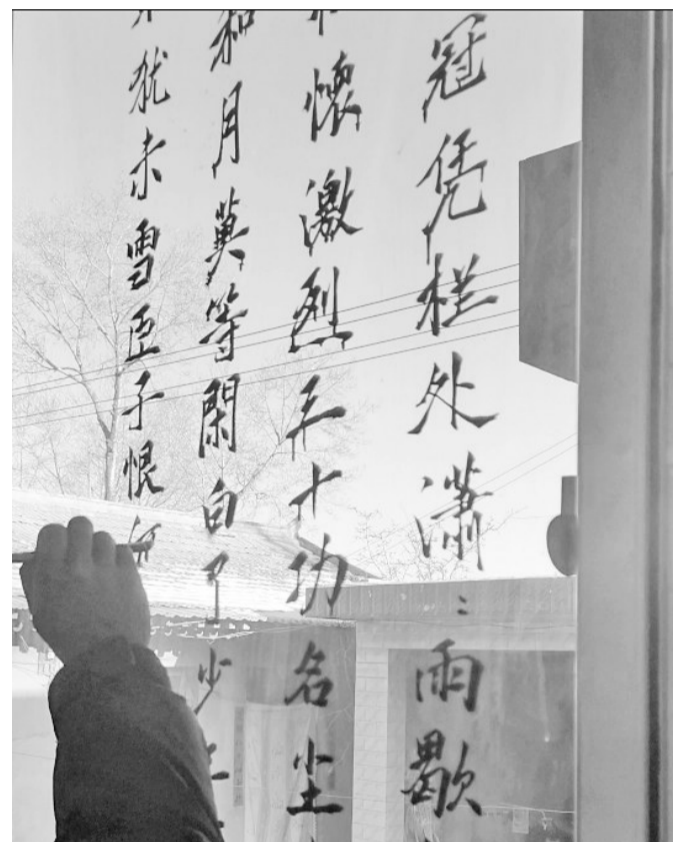 冠凭栏外潇⺀雨歇
懷激烈三十功名尘
和月莫等閑白了少年
犹未雪臣子恨何